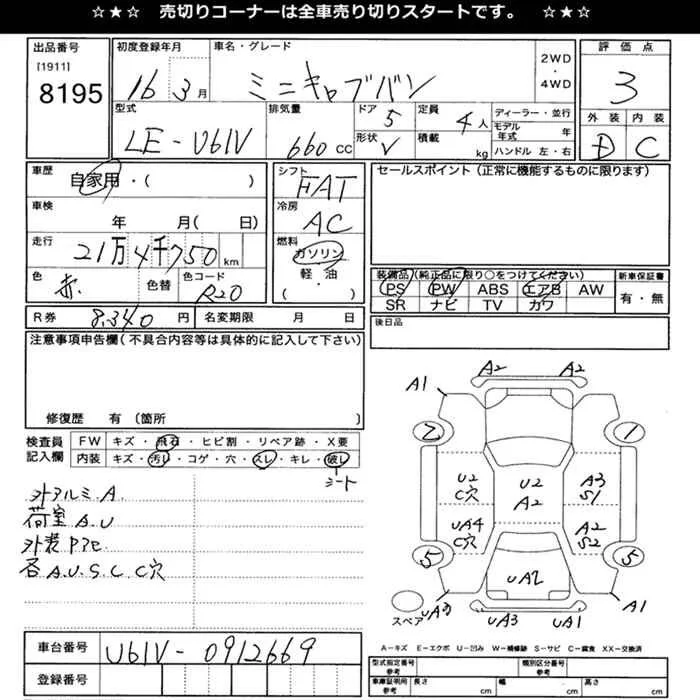 ☆★☆ 売切りコーナーは全車売り切りスタートです。 ☆★☆
出品番号
[1911]
8195
初度登録年月
16 3月
車名・グレード
ミニキャブバン
2WD
・
4WD
評価点
3
型式
LE-U61V
排気量
660 CC
ドア
5
形状
V
定員
4人
積載
kg
ディーラー・並行
モデル年式 年
ハンドル 左・右
外装
D
内装
C
車歴
自家用・( )
車検
年 月( 日)
走行
21万4千750 km
色
赤
色替
色コード
R20
シフト
FAT
冷房
AC
燃料
ガソリン
軽・油
・( )
セールスポイント (正常に機能するものに限ります)
装備品(純正品に限り○をつけてください)
PS PW ABS エアB AW
SR ナビ TV カワ
新車保証書
有・無
R券 8,340 円
名変期限 月 日
後日品
注意事項申告欄(不具合内容等は具体的に記入して下さい)
修復歴 有 (箇所 )
検査員
記入欄
FW キズ・飛石・ヒビ割・リペア跡・X要
内装 キズ・汚レ・コゲ・穴・スレ・キレ・破レ
シート
外アルミA
荷室A.U
外装
各A.U.S.C C穴
A1 A2 A2
2 1
U2
C穴
U2
A2
A3
S1
UA4
C穴
A2
S2
5 5
UA2
スペア
UA3 UA3 UA1 A1
A-キズ E-エクボ U-凹み W-補修跡 S-サビ C-腐食 XX-交換済
車台番号
U61V-0912669
登録番号
型式指定番号
参考
類別区分番号
車庫証明用
参考
長さ cm
幅 cm
高さ cm